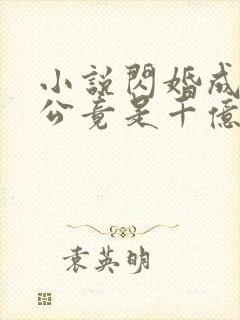 小說閃婚成
公竟是千億
袁英明